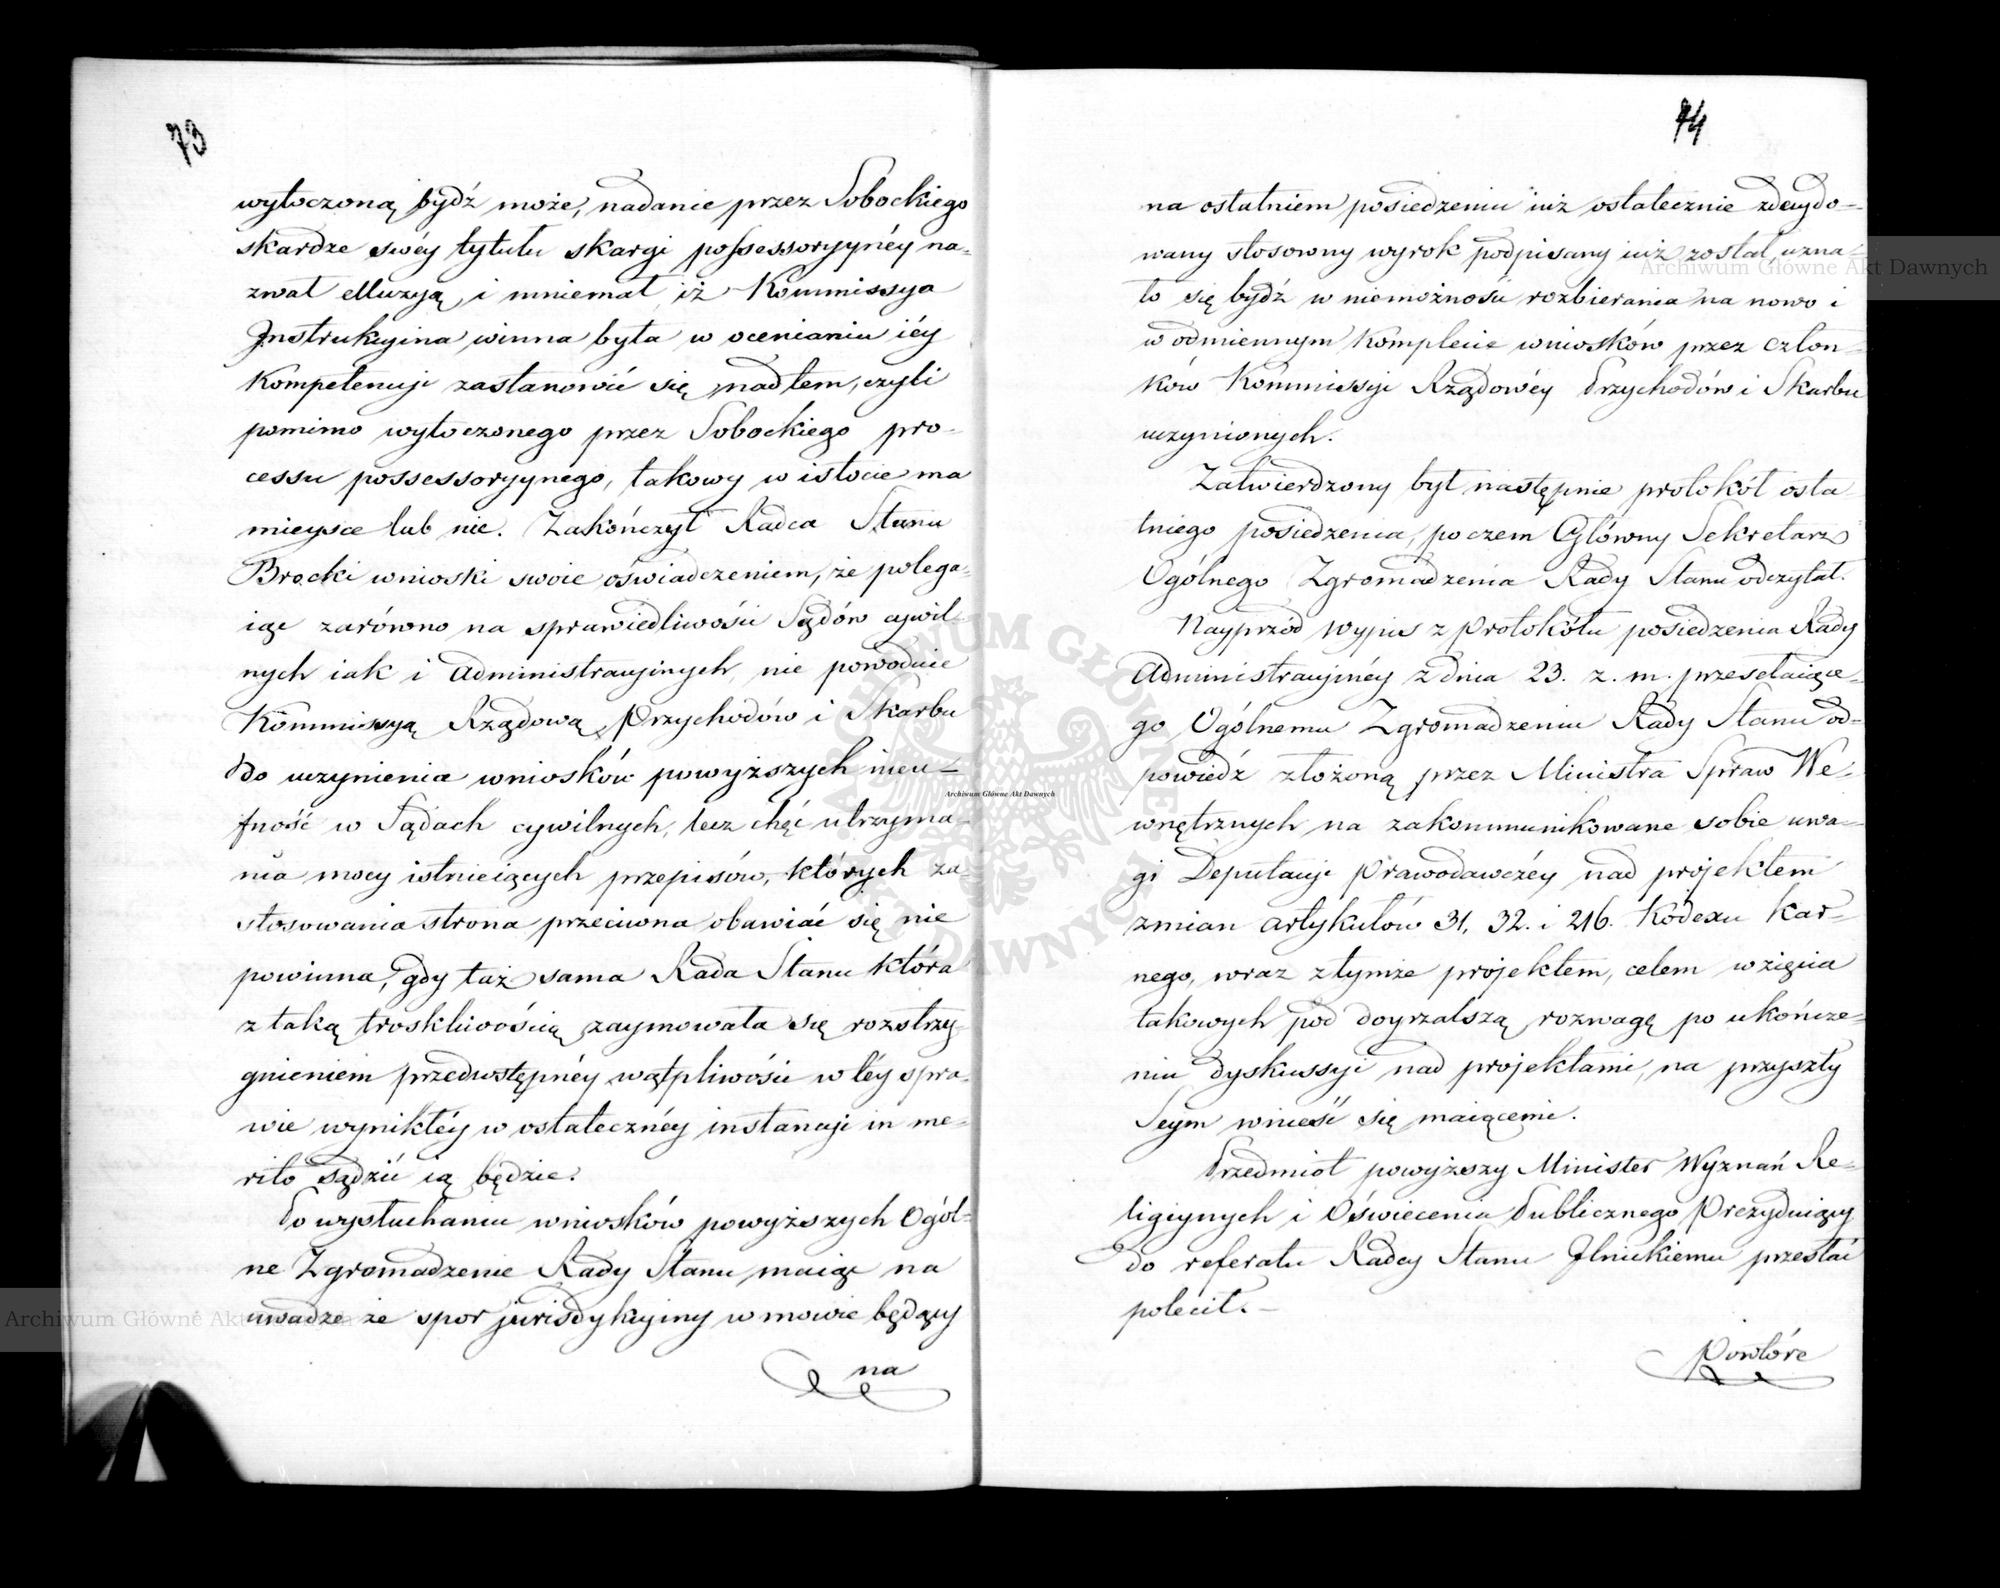 73
wytoczoną bydź może, nadanie przez Sobockiego
skardze swéy tytułu skargi possessoryynéy na-
zwał elluzyą, i mniemał, iż Kommissya
Instrukcyina winna była w ocenianiu iéy
Kompetencyi zastanowić się nadtem, czyli
pomimo wytoczonego przez Sobockiego pro-
cessu possessoryynego, takowy w istocie ma
mieysce lub nie. Zakończył Radca Stanu
Brocki wnioski swoie oświadczeniem, że polega-
iąc zarówno na sprawiedliwości Sądów cywil-
nych iak i administracyinych, nie powoduie
Kommissyą Rządową Przychodów i Skarbu
do uczynienia wniosków powyższych nieu-
fność w Sądach cywilnych, lecz chęć utrzyma-
nia mocy istnieiących przepisów, których za-
stosowania strona przeciwna obawiać się nie
powinna, gdy taż sama Rada Stanu która
z taką troskliwością zaymowała się rozstrzy-
gnieniem przedwstępnéy wątpliwości w téy spra-
wie wynikłéy w ostatecznéy instancyi in me-
rito sądzić ią będzie.
Po wysłuchaniu wniosków powyższych Ogól-
ne Zgromadzenie Rady Stanu maiąc na
uwadze że spor jurisdykcyiny w mowie będący
na
74
na ostatniem posiedzeniu iuż ostatecznie zdecydo-
wany stosowny wyrok podpisany iuż został, uzna-
ło się bydź w niemożności rozbierania na nowo i
w odmiennym Komplecie wniosków przez człon-
ków Kommissyi Rządowéy Przychodów i Skarbu
uczynionych.
Zatwierdzony był następnie protokół osta-
tniego posiedzenia, poczem Główny Sekretarz
Ogólnego Zgromadzenia Rady Stanu odczytał.
Nayprzód wypis z Protokółu posiedzenia Rady
Administracyinéy z dnia 23. z. m. przesełaiące-
go Ogólnemu Zgromadzeniu Rady Stanu od-
powiedź złożoną przez Ministra Spraw We-
wnętrznych na zakommunikowane sobie uwa-
gi Deputacyi Prawodawczéy nad projektem
zmian artykułów 31, 32. i 216. Kodexu Kar-
nego, wraz z tymże projektem, celem wzięcia
takowych pod doyrzalszą rozwagę po ukończe-
niu dyskussyi nad projektami, na przyszły
Seym wnieść się maiącemi.
Przedmiot powyższy Minister Wyznań Re-
ligiynych i Oświecenia Publicznego Prezyduiący
do referatu Radcy Stanu Ilnickiemu przesłać
polecił. –
Powtóre
Archiwum Główne Akt Dawnych
Archiwum Główne Akt Dawnych
Archiwum Główne Akt Dawnych
ARCHIWUM GŁÓWNE AKT DAWNYCH